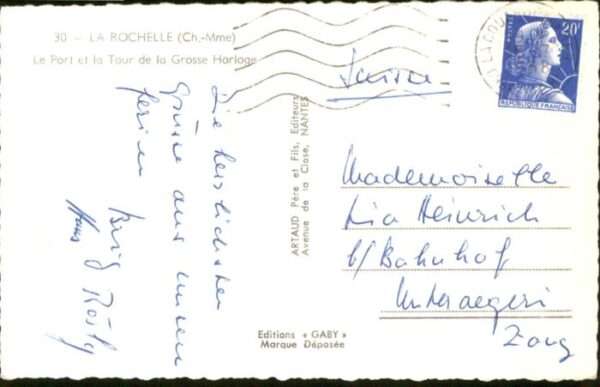 30 - LA ROCHELLE (Ch.-Mme)
Le Port et la Tour de la Grosse Horloge
Die herzlichsten
Grüsse aus unseren
ferien
Hans
ARTAUD Père et Fils, Editeurs
Avenue de la Close, NANTES
Editions « GABY »
Marque Déposée
POSTES
20F
REPUBLIQUE FRANÇAISE
Suisse
Mademoiselle
Lia Heinrich
b/Bahnhof
Unteraegeri
Zoug